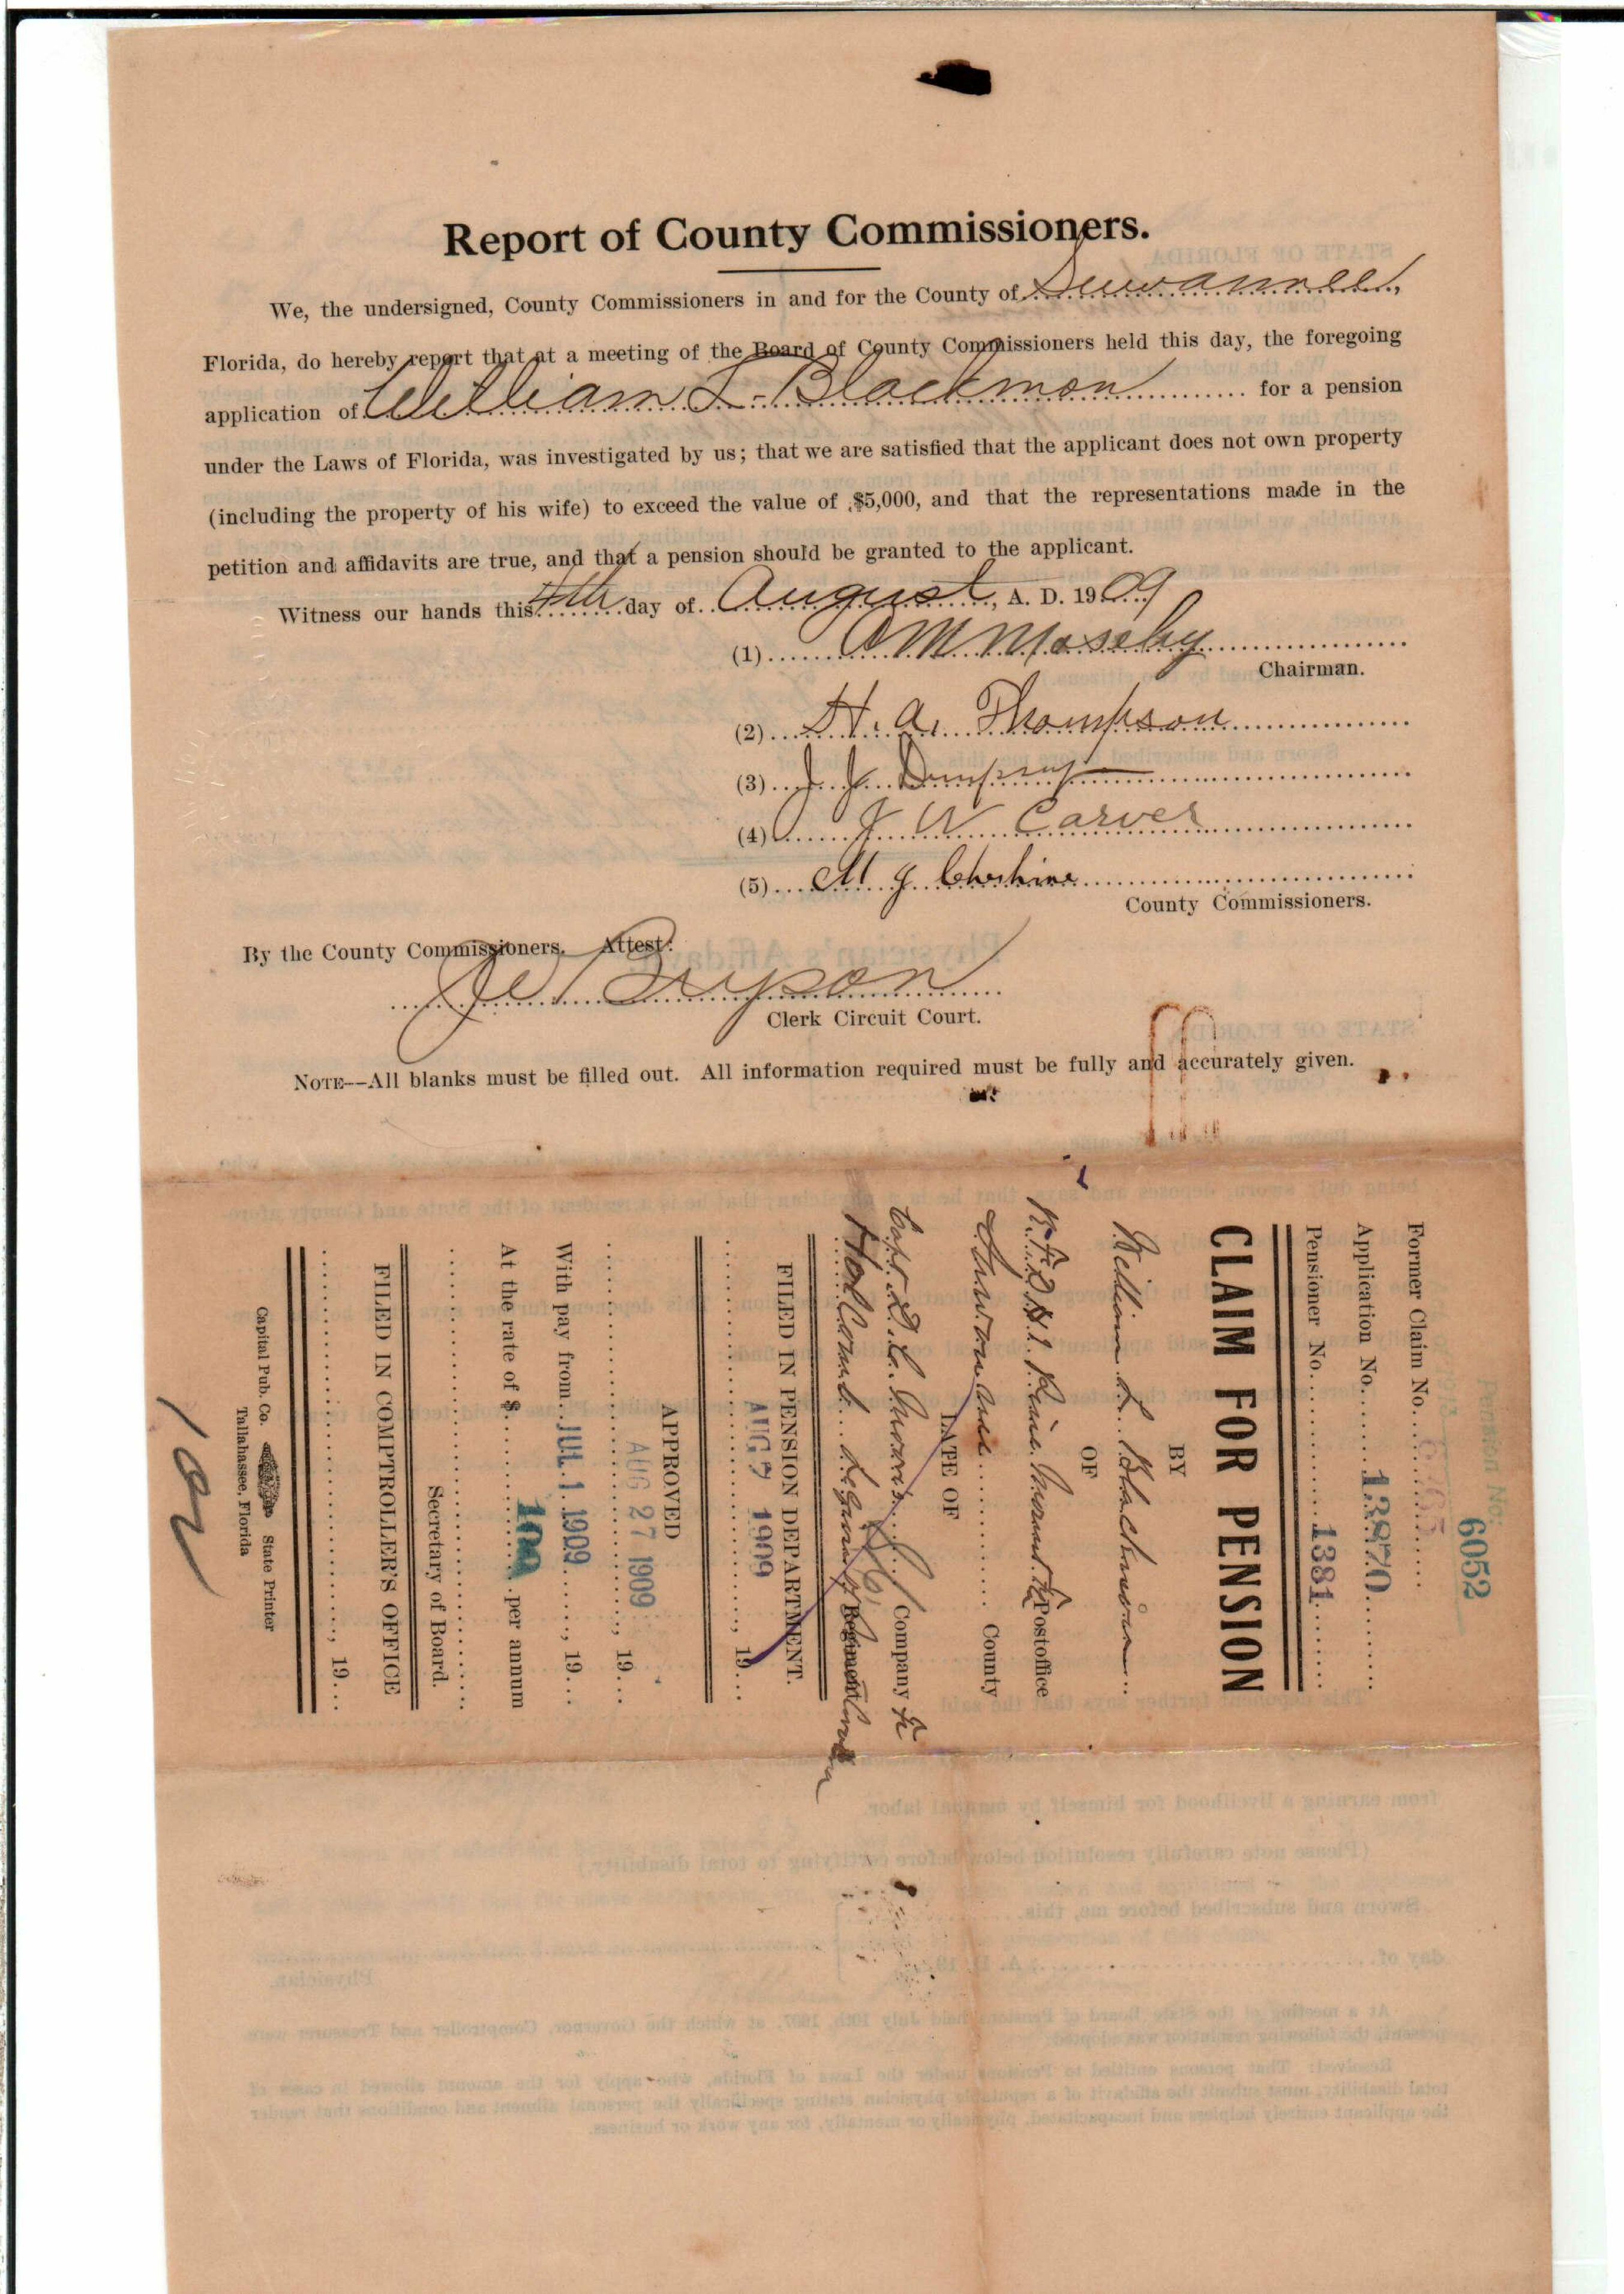 Report of County Commissioners.
We, the undersigned, County Commissioners in and for the County of Suwannee,
Florida, do hereby report that at a meeting of the Board of County Commissioners held this day, the foregoing
application of William L. Blackmon for a pension
under the Laws of Florida, was investigated by us; that we are satisfied that the applicant does not own property
(including the property of his wife) to exceed the value of $5,000, and that the representations made in the
petition and affidavits are true, and that a pension should be granted to the applicant.
Witness our hands this 4th day of August, A. D. 1909
(1) M Moseby
Chairman.
(2) H. A. Thompson
(3) J. J.
(4) J W Carver
(5) M J Cheshire
County Commissioners.
By the County Commissioners. Attest:
Bryson
Clerk Circuit Court.
NOTE—All blanks must be filled out. All information required must be fully and accurately given.
Pension No.
6052
Former Claim No.
Application No. 13870
Pensioner No. 1381
CLAIM FOR PENSION
BY
William L. Blackmon
OF
R.F.D. #1. Postoffice
Suwannee County
LATE OF
Capt. Company
Holcomb Legion Regiment
FILED IN PENSION DEPARTMENT.
AUG 7 1909, 19
APPROVED
AUG 27 1909, 19
With pay from JUL 1 1909, 19
At the rate of $ 100 per annum
Secretary of Board.
FILED IN COMPTROLLER'S OFFICE
, 19
Capital Pub. Co. State Printer
Tallahassee, Florida